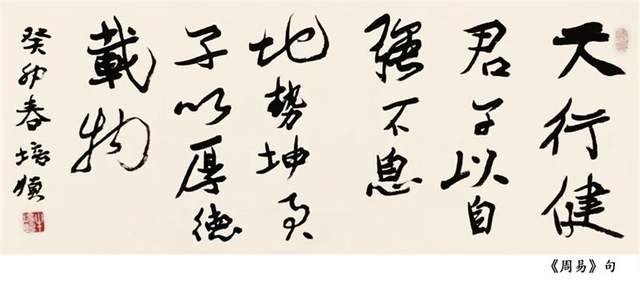 天行健
君子以自
強不息
地勢坤君
子以厚德
載物
癸卯春培順
《周易》句